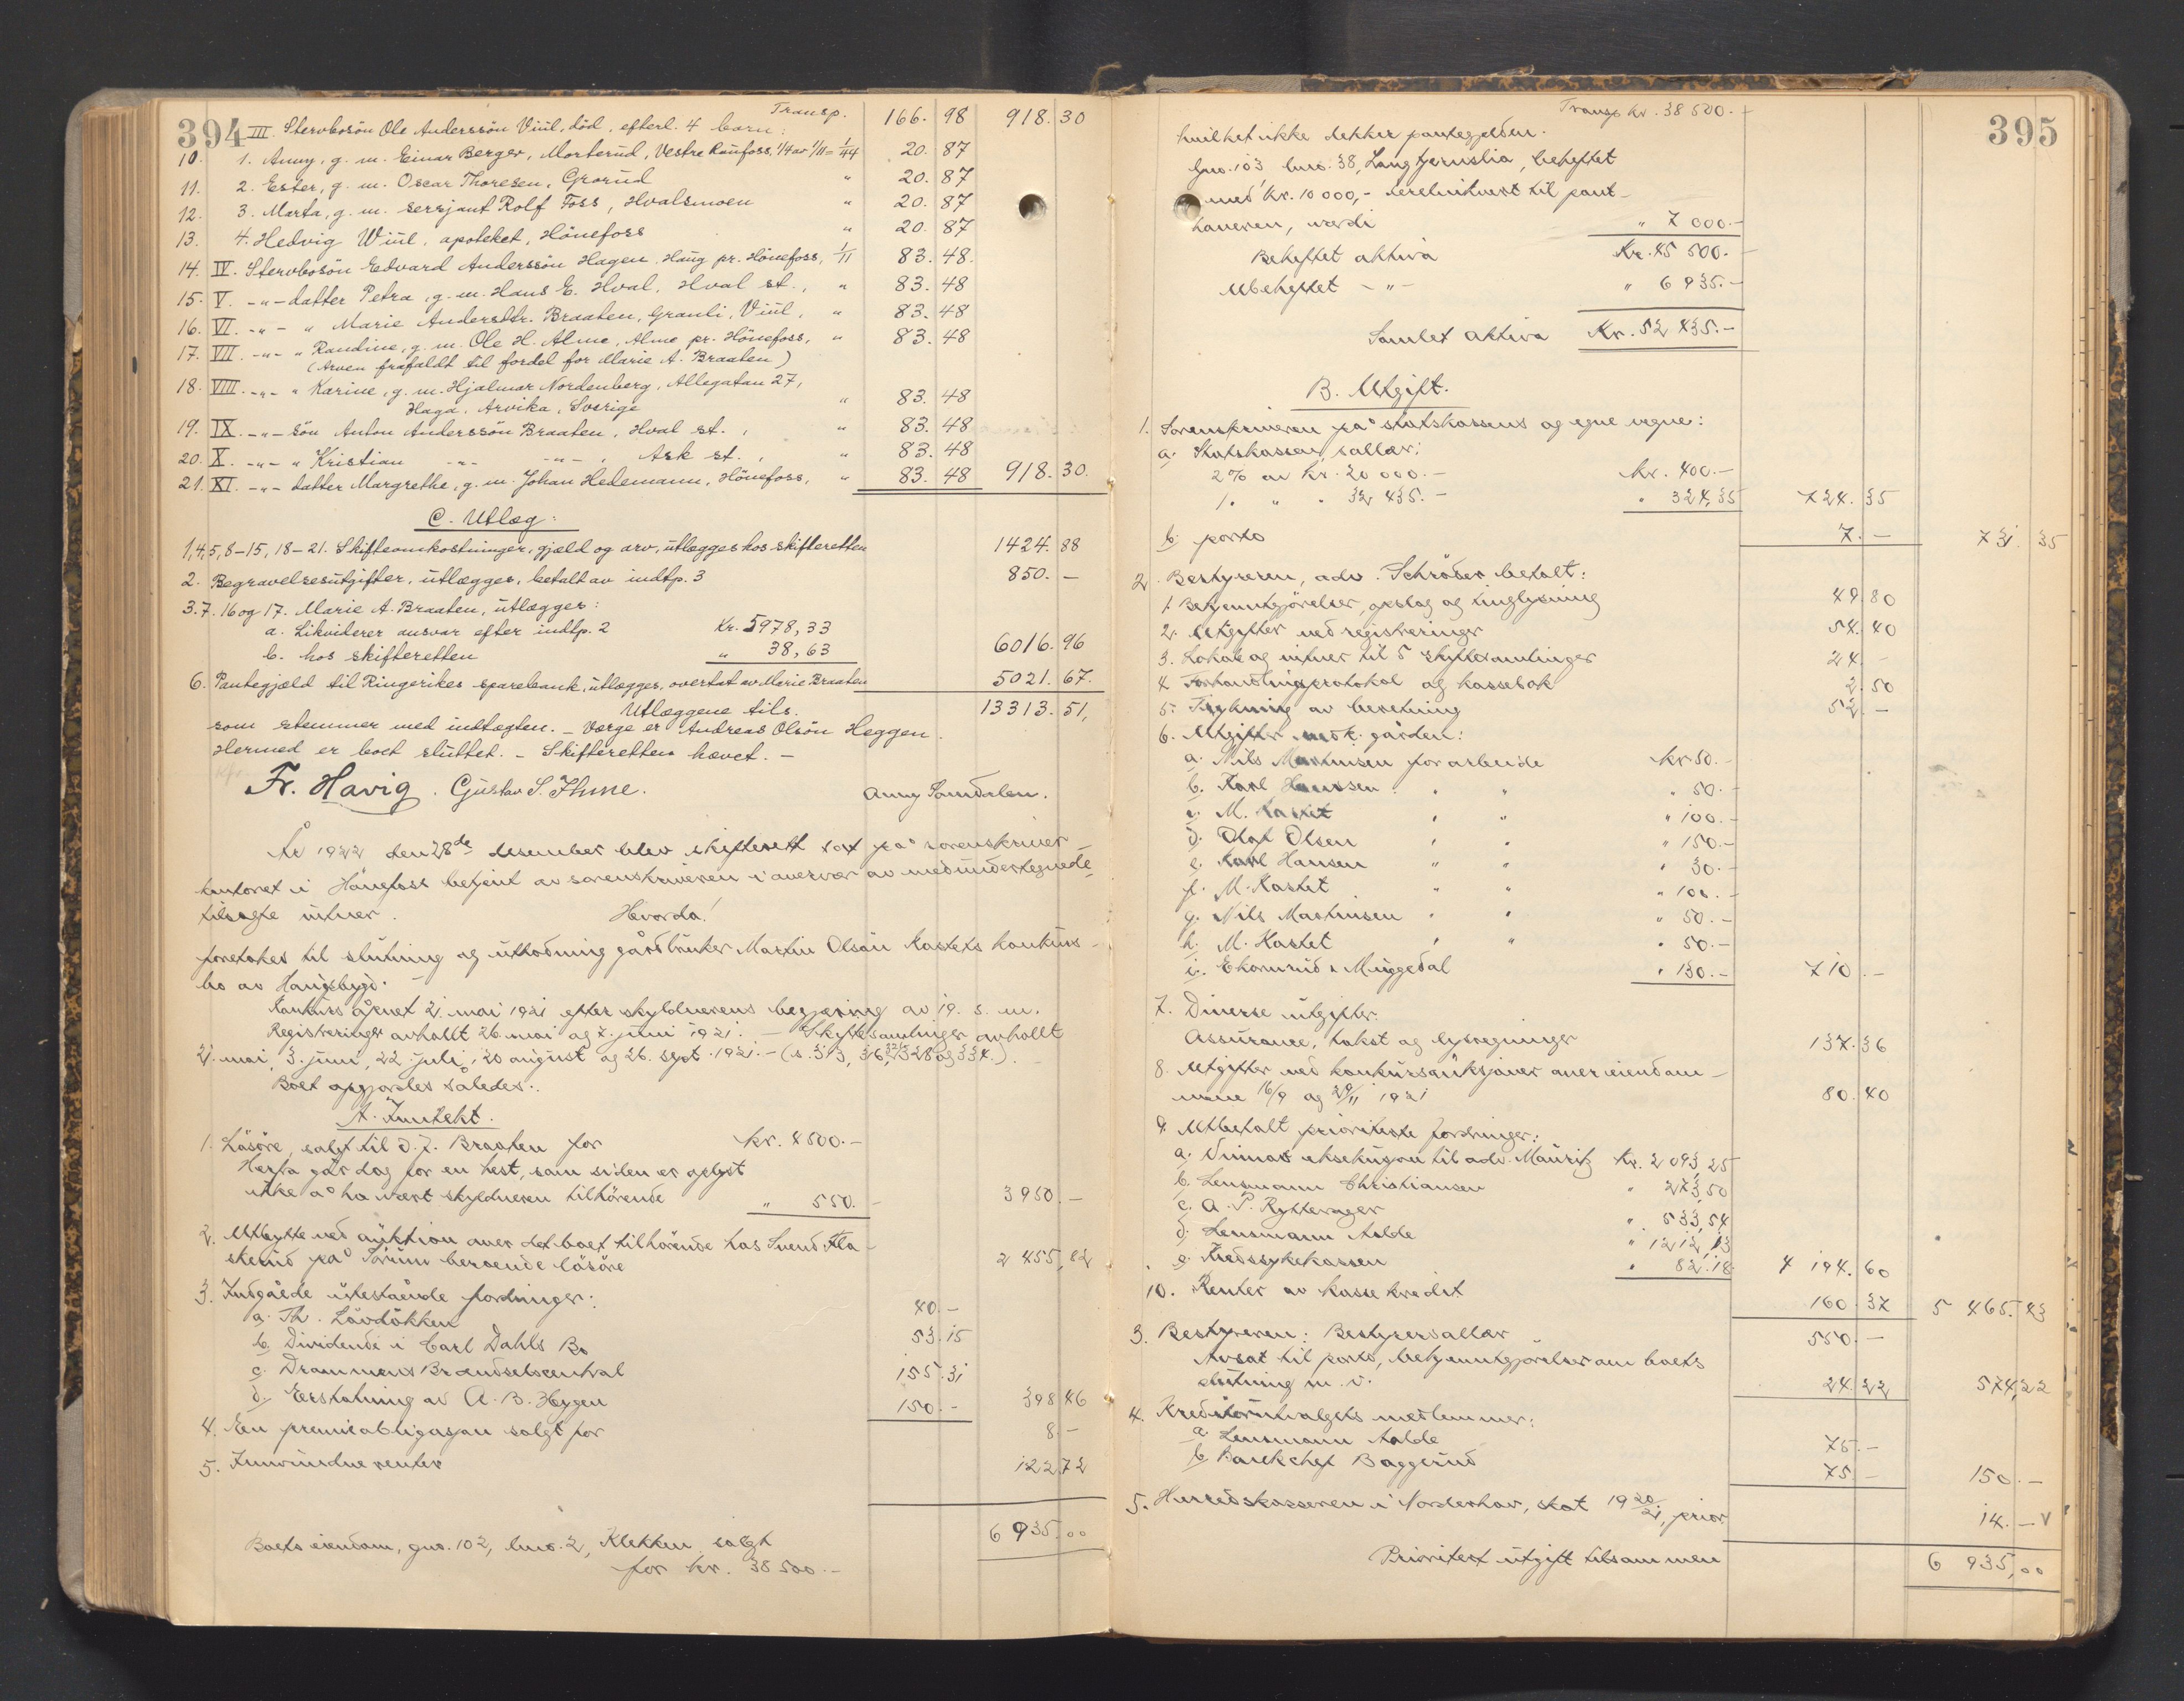 394
Transp. 166. 98 918. 30
III. Stervbosön Ole Anderssön Viul, död, efterl. 4 barn:
10. 1. Anny, g. m. Einar Berger, Morterud, Vestre Raufoss, 1/4 av 1/11 = 1/44 20. 87
11. 2. Ester, g. m. Oscar Thoresen, Grorud " 20. 87
12. 3. Marta, g. m. serjant Rolf Foss, Hvalsmoen " 20. 87
13. 4. Hedvig Wiul, apoteket, Hönefoss " 20. 87
14. IV. Stervbosön Edvard Anderssön Hagen, Haug pr. Hönefoss, 1/11 83. 48.
15. V. -"- datter Petra, g. m. Hans E. Hval, Hval st., " 83. 48
16. VI. -"- " Marie Andersdtr. Braaten, Granli, Viul, " 83. 48
17. VII. -"- " Randine, g. m. Ole H. Alme, Alme pr. Hönefoss, " 83. 48
(Arven frafaldt til fordel for Marie A. Braaten)
18. VIII. -"- " Karine, g. m. Hjalmar Nordenberg, Allegatan 27,
Haga, Arvika, Sverige " 83. 48
19. IX. -"- sön Anton Anderssön Braaten, Hval st., " 83. 48
20. X. -"- " Kristian -"- -"-, Ask st., " 83. 48
21. XI. -"- datter Margrethe, g. m. Johan Hedemann, Hönefoss, " 83. 48 918. 30.
C. Utlæg:
1, 4, 5, 8-15, 18-21. Skifteomkostninger, gjæld og arv, utlægges hos skifteretten 1424. 88
2. Begravelsesutgifter, utlægges, betalt av indtp. 3 850. —
3. 7. 16 og 17. Marie A. Braaten, utlægges:
a. Likviderer ansvar efter indtp. 2 Kr. 5978,33
b. hos skifteretten " 38,63 6016. 96
6. Pantegjæld til Ringerikes sparebank, utlægges, overtat av Marie Braaten 5021. 67.
Utlæggene tils. 13313. 51,
som stemmer med indtægten. - Værge er Andreas Olsön Heggen.
Hermed er boet sluttet. - Skifteretten hævet. -
Fr. Havig. Gustav S. Thune. Anny Samdalen.
År 1922 den 28de desember blev skifterett sat på sorenskriver-
kontoret i Hönefoss betjent av sorenskriveren i overvær av medundertegnede
tilsagte vitner. Hvorda!
foretokes til slutning og utlodning gårdbruker Martin Olsön Kastets konkurs-
bo av Haugsbygd.
Konkurs åpnet 21. mai 1921 efter skyldnerens begjæring av 19. s. m.
Registreringer avholdt 26. mai og 7. juni 1921. - Skiftesamlinger avholdt
21. mai, 3. juni, 22. juli, 20 august og 26. sept. 1921. - (s. 313, 316, 321, 328 og 334.)
Boet opgjordes således:
A. Inntekt.
1. Lösöre, salgt til O. J. Braaten for kr. 4500.-
Herfra går dog for en hest, som siden er oplyst
ikke å ha vært skyldneren tilhörende " 550.- 3950. -
2. Utbytte ved auktion over det boet tilhörende hos Svend Kla-
sterud på Sörum beroende lösöre 2 455,82
3. Indgåede utestående fordringer:
a. Th. Lövdökken 40. -
b. Dividende i Carl Dahls Bo 53. 15
c. Drammens Brændselscentral 155. 31
d. Erstatning av A. B. Hygen 150. - 398 46
4. En premieobligasjon solgt for 8. -
5. Innvundne renter 122 72
6 935. 00
Boets eiendom, gno. 102, bno. 2, Klekken solgt
for kr. 38 500.-
395
Transp. kr. 38 500.-
hvilket ikke dekker pantegjelden.
Gno. 103 bno. 38, Langtjernslia, beheftet
med kr. 10 000,- overlevert til pant-
haveren, verdi " 7 000.-
Beheftet aktiva Kr. 45 500.-
Ubeheftet -"- " 6 935.-
Samlet aktiva Kr. 52 435.-
B. Utgift.
1. Sorenskriveren på statskassens og egne vegne:
a. Statskassen, sallær:
2% av kr. 20 000.- Kr. 400.-
1 " " " 32 435.- " 324,35 724. 35
b. porto 7. - 731. 35
2. Bestyreren, adv. Schröder betalt:
1. Bekjentgjörelser, opslag og tinglysning 49 80
2. Utgifter ved registreringer 54. 40
3. Lokale og vitner til 5 skiftesamlinger 24. -
4. Forhandlingsprotokol og kassebok 2. 50
5. Trykning av beretning 52. -
6. Utgifter vedk. gården:
a. Nils Martinsen for arbeide kr 50.-
b. Karl Hanssen " " " 50.-
c. M. Kastet " " " 100.-
d. Olaf Olsen " " " 150.-
e. Karl Hansen " " " 30.-
f. M. Kastet " " " 100.-
g. Nils Martinsen " " " 50.-
h. M. Kastet " " " 50.-
i. Ekornrud & Muggedal " 130.- 710. -
7. Diverse utgifter.
Assurance, takst og lysregninger 137. 36
8. Utgifter ved konkursauksjoner over eiendom-
mene 16/9 og 29/11 1921 80. 40
9. Utbetalt prioriterte fordringer:
a. Vinnas eksekusjon til adv. Mauritz Kr. 2 093,25
b. Lensmann Christiansen " 273,50
c. A. P. Rytterager " 533,54
d. Lensmann Aalde " 1212,13
e. Kredssykekassen " 82.18 4 194. 60
10. Renter av kassekredit 160. 37 5 465. 43
3. Bestyreren: Bestyrersallær 550. -
Avsat til porto, bekjentgjörelser om boets
slutning m. v. 24. 22 574,22
4. Kreditorutvalgets medlemmer:
a. Lensmann Aalde 75. -
b. Bankchef Baggerud 75. - 150. -
5. Herredskasseren i Norderhov, skat 1920/21, prior. 14. - v
Prioritert utgift tilsammen 6 935,00